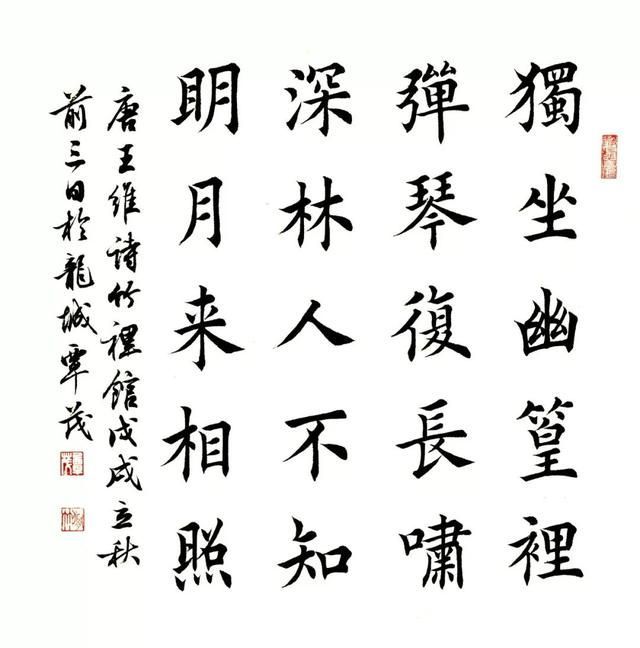 獨坐幽篁裡
彈琴復長嘯
深林人不知
明月来相照
唐王維詩竹裡館戊戌立秋
前三日於龍城覃茂